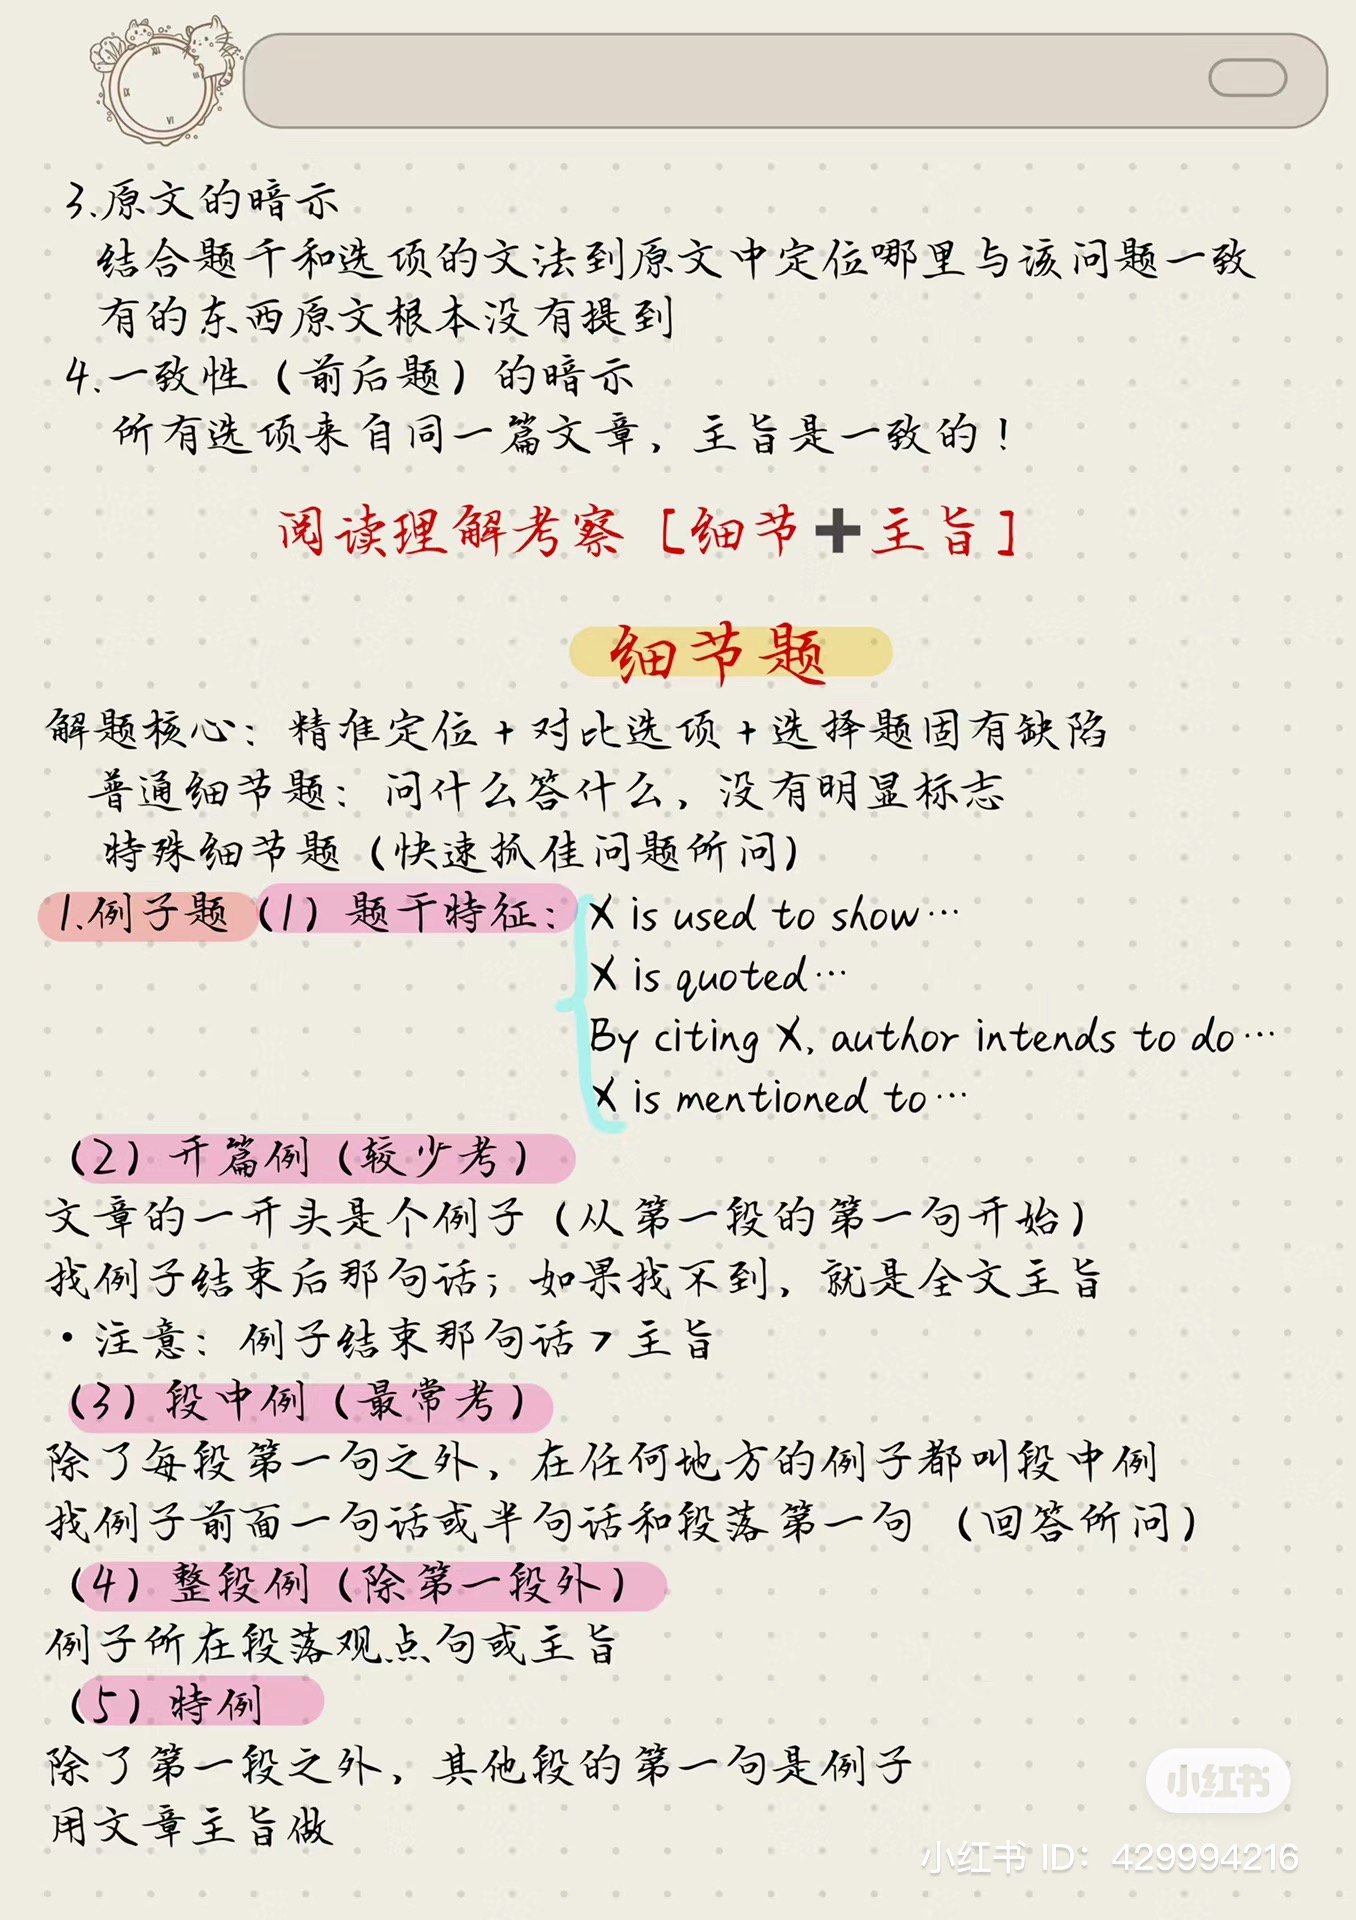 3.原文的暗示
结合题干和选项的文法到原文中定位哪里与该问题一致
有的东西原文根本没有提到
4.一致性（前后题）的暗示
所有选项来自同一篇文章，主旨是一致的！
阅读理解考察［细节➕主旨］
细节题
解题核心：精准定位+对比选项+选择题固有缺陷
普通细节题：问什么答什么，没有明显标志
特殊细节题（快速抓住问题所问）
1.例子题（1）题干特征：X is used to show…
X is quoted…
By citing X, author intends to do…
X is mentioned to…
（2）开篇例（较少考）
文章的一开头是个例子（从第一段的第一句开始）
找例子结束后那句话；如果找不到，就是全文主旨
•注意：例子结束那句话>主旨
（3）段中例（最常考）
除了每段第一句之外，在任何地方的例子都叫段中例
找例子前面一句话或半句话和段落第一句（回答所问）
（4）整段例（除第一段外）
例子所在段落观点句或主旨
（5）特例
除了第一段之外，其他段的第一句是例子
用文章主旨做
小红书
小红书 ID：429994216